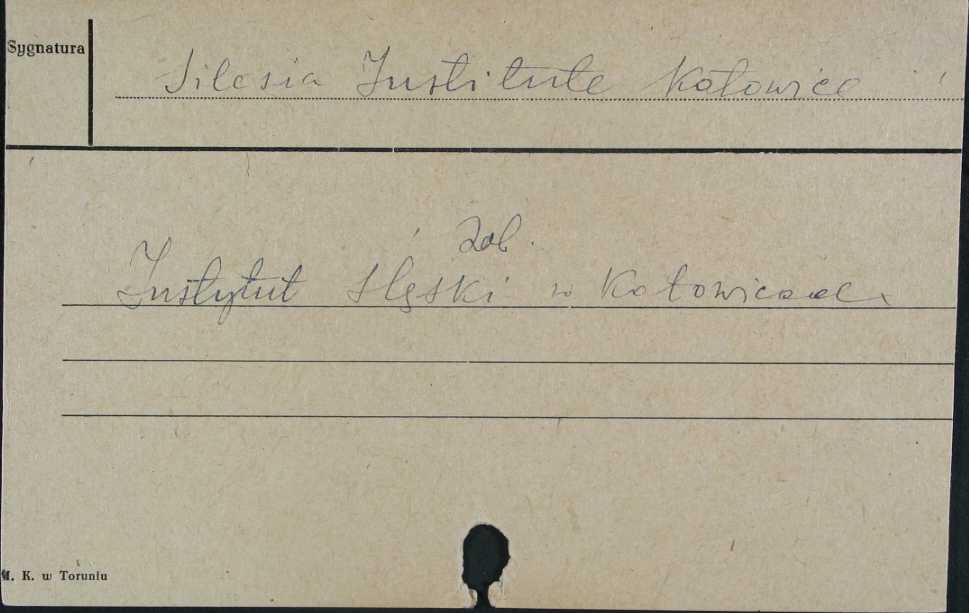 Sygnatura
Silesia Institute Katowice
zob.
Instytut Śląski w Katowicach
M. K. w Toruniu